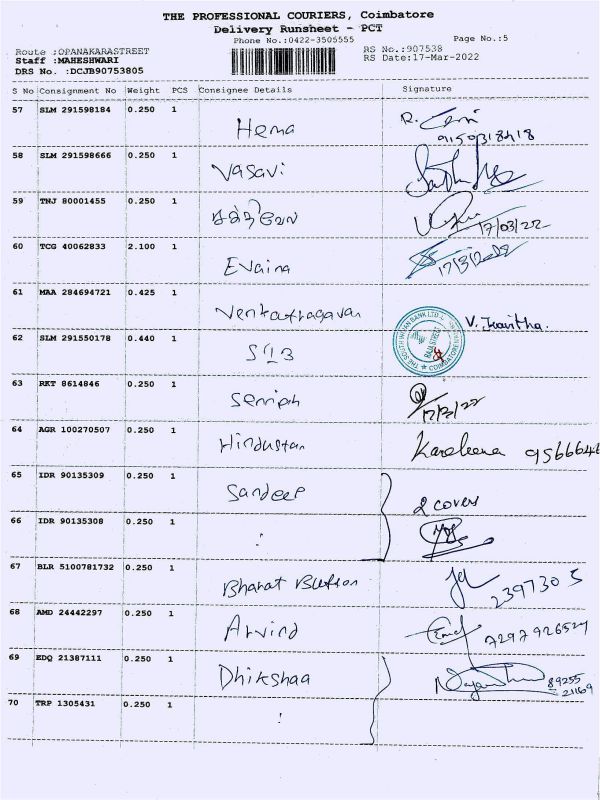 THE PROFESSIONAL COURIERS, Coimbatore
Delivery Runsheet - PCT
Phone No.:0422-3505555
Page No.:5
Route :OPANAKARASTREET
RS No.:907538
Staff :MAHESHWARI
RS Date:17-Mar-2022
DRS No. :DCJB90753805
S No Consignment No Weight PCS Consignee Details Signature
57 SLM 291598184 0.250 1 Hema R.
9150318418
58 SLM 291598666 0.250 1 Vasavi
59 TNJ 80001455 0.250 1 சக்திவேல் 17/03/22
60 TCG 40062833 2.100 1 Evaina 17/3/2022
61 MAA 284694721 0.425 1 Venkatragavan V. Kavitha.
62 SLM 291550178 0.440 1 SIB
THE SOUTH INDIAN BANK LTD. RAJA STREET COIMBATORE
63 RKT 8614846 0.250 1 17/3/22
64 AGR 100270507 0.250 1 Hindustan 9566646
65 IDR 90135309 0.250 1 Sandeep 2 covers
66 IDR 90135308 0.250 1 :
67 BLR 5100781732 0.250 1 Bharat Button 2397305
68 AMD 24442297 0.250 1 Arvind 7297926527
69 EDQ 21387111 0.250 1 Dhikshaa 89255
21169
70 TRP 1305431 0.250 1 :